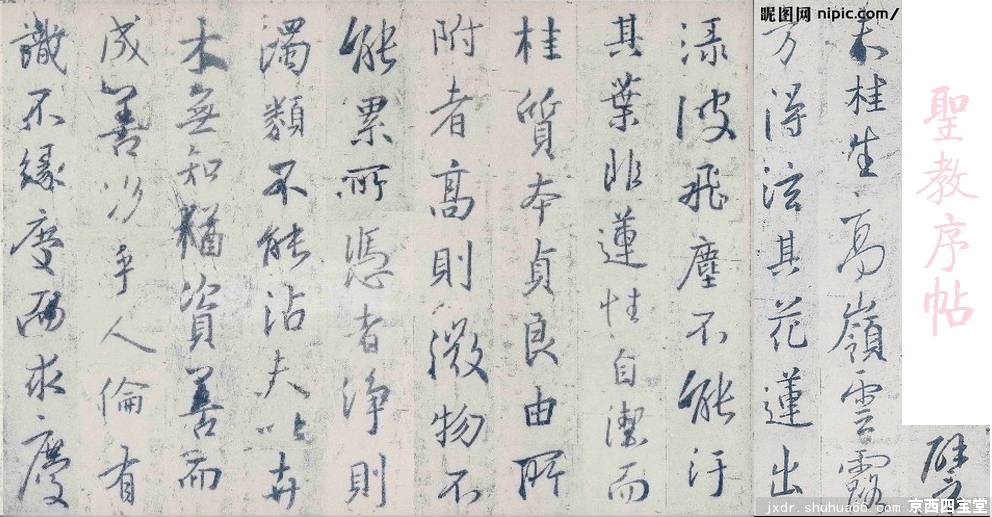 聖教序帖
譬
夫桂生高嶺雲露
方得泫其花蓮出
淥波飛塵不能汙
其葉非蓮性自潔而
桂質本貞良由所
附者高則微物不
能累所憑者淨則
濁類不能沾夫以卉
木無知猶資善而
成善況乎人倫有
識不緣慶而求慶
昵图网 nipic.com/
jxdr.shuhua66.com 京西四宝堂